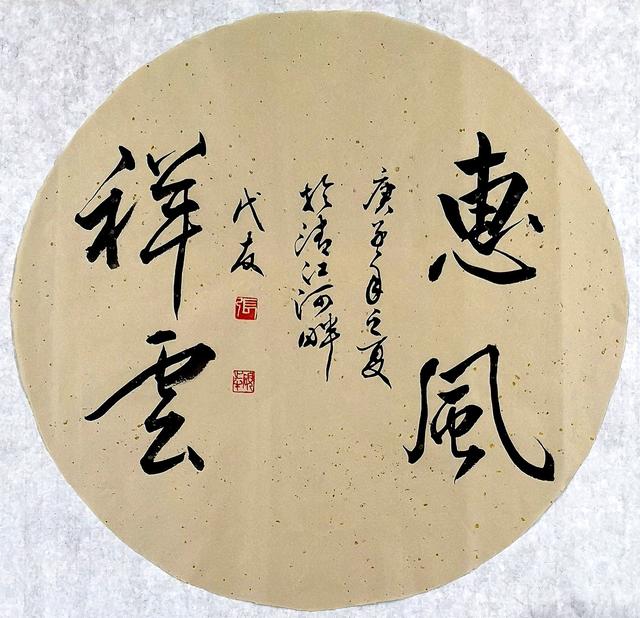 惠風
庚子年之夏
於清江河畔
代友
張
祥雲